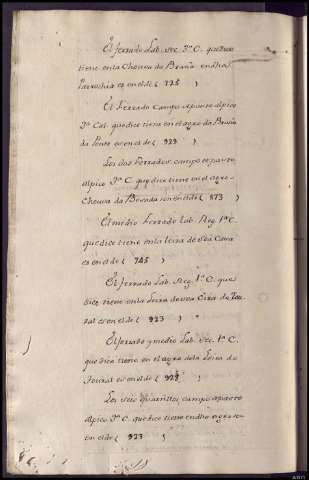 El ferrado Lab. sec. 3ª C. que dice
tiene en la Chouva da Braña en dha
Parrochia es en el de ( 775 )
El Ferrado campo a pasto alpico
3ª Cal. que dice tiene en el agro da Braña
da Ponte es en el de ( 923 )
Los dos Ferrados campo a pasto
alpico 3ª C. que dice tiene en el agro
Chouva da Bouada son en el de ( 873 )
El medio Ferrado Lab. Reg. 1ª C.
que dice tiene en la leira de sua Casa
es en el de ( 745 )
El ferrado Lab. Reg. 1ª C. que
dice tiene en la Leira de
es en el de ( 923 )
El ferrado y medio Lab. sec. 1ª C.
que dice tiene en el agro de la Leira do
Souzal es en el de ( 929 )
Los seis quartillos campo a pasto
alpico 3ª C. que dice tiene en dho agro
en el de ( 923 )